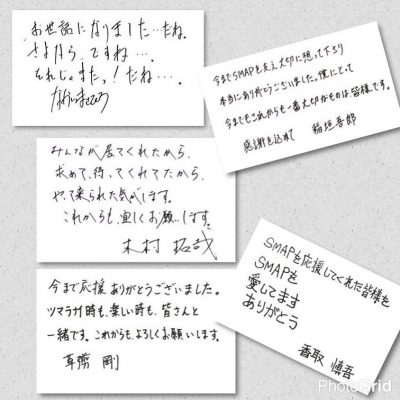 お世話になりました…だね。
さよなら、ですね…。
それじゃまたっ!だね…。
なかいまさひろ
今までSMAPを支え大切に想って下さり
本当にありがとうございました。僕にとって
今までもこれからも一番大切なものは皆様です。
感謝を込めて 稲垣吾郎
みんなが居てくれたから、
求めて、待っててくれてたから、
やって来られた気がします。
これからも、宜しくお願いします。
木村拓哉
今まで応援ありがとうございました。
ツマラナイ時も、楽しい時も、皆さんと
一緒です。これからも、よろしくお願いします。
草彅 剛
SMAPを応援してくれた皆様を
SMAPを
愛してます
ありがとう
香取 慎吾
PhotoGrid